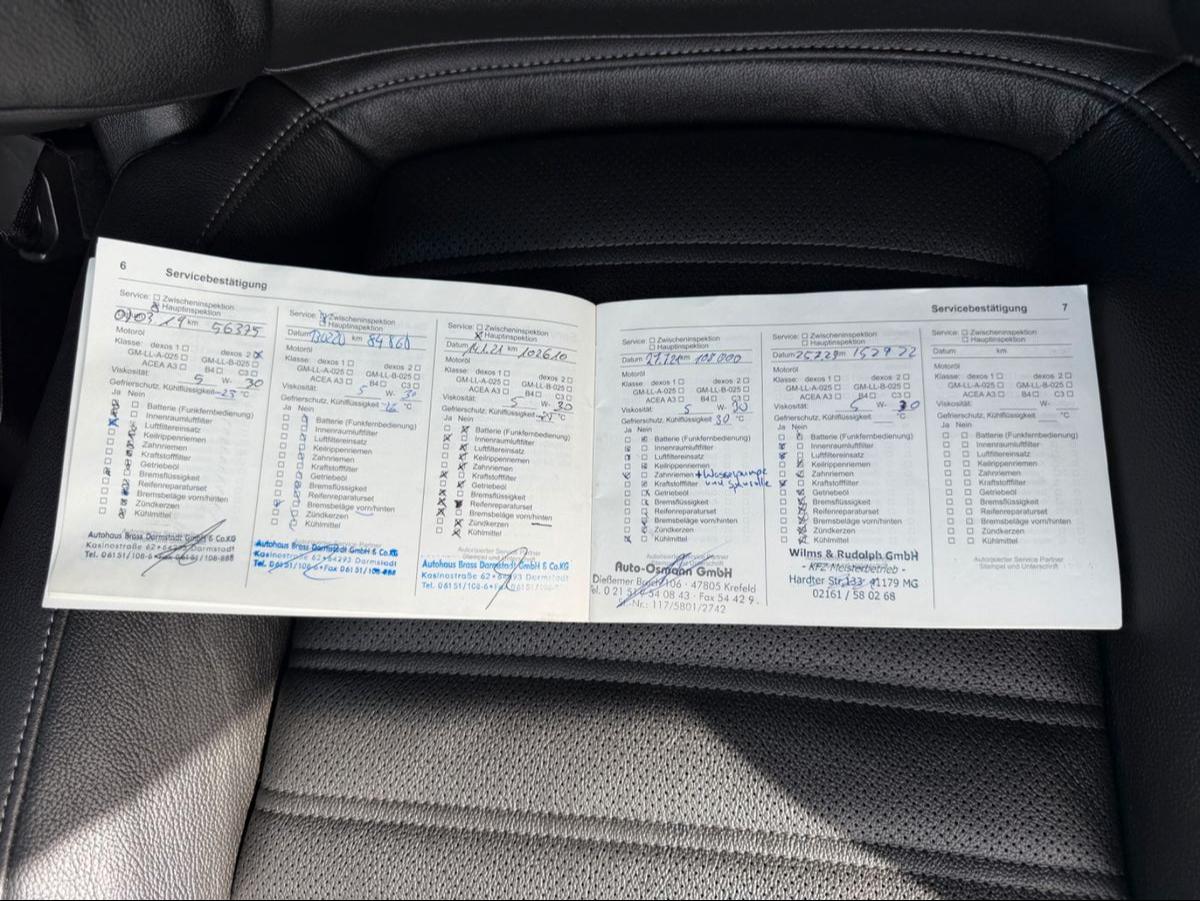 6 Servicebestätigung
Service: Zwischeninspektion
Hauptinspektion
03 19 km 56375
Motoröl
Klasse: dexos 1 dexos 2
GM-LL-A-025 GM-LL-B-025
ACEA A3 B4 C3
Viskosität: 5 W- 30
Gefrierschutz, Kühlflüssigkeit -25 °C
Ja Nein
Batterie (Funkfernbedienung)
Innenraumluftfilter
Luftfiltereinsatz
Keilrippenriemen
Zahnriemen
Kraftstofffilter
Getriebeöl
Bremsflüssigkeit
Reifenreparaturset
Bremsbeläge vorn/hinten
Zündkerzen
Kühlmittel
Autohaus Brass Darmstadt GmbH & Co.KG
Kasinostraße 62 • 64293 Darmstadt
Tel. 06151/108-6 • Fax 06151/108-888
Service: Zwischeninspektion
Hauptinspektion
Datum km 84.860
Motoröl
Klasse: dexos 1 dexos 2
GM-LL-A-025 GM-LL-B-025
ACEA A3 B4 C3
Viskosität: 5 W- 30
Gefrierschutz, Kühlflüssigkeit °C
Ja Nein
Batterie (Funkfernbedienung)
Innenraumluftfilter
Luftfiltereinsatz
Keilrippenriemen
Zahnriemen
Kraftstofffilter
Getriebeöl
Bremsflüssigkeit
Reifenreparaturset
Bremsbeläge vorn/hinten
Zündkerzen
Kühlmittel
Autohaus Brass Darmstadt GmbH & Co.KG
Kasinostraße 62 • 64293 Darmstadt
Tel. 06151/108-6 • Fax 06151/108-888
Service: Zwischeninspektion
Hauptinspektion
Datum km 102610
Motoröl
Klasse: dexos 1 dexos 2
GM-LL-A-025 GM-LL-B-025
ACEA A3 B4 C3
Viskosität: 5 W- 30
Gefrierschutz, Kühlflüssigkeit °C
Ja Nein
Batterie (Funkfernbedienung)
Innenraumluftfilter
Luftfiltereinsatz
Keilrippenriemen
Zahnriemen
Kraftstofffilter
Getriebeöl
Bremsflüssigkeit
Reifenreparaturset
Bremsbeläge vorn/hinten
Zündkerzen
Kühlmittel
Autorisierter Service Partner
Stempel und Unterschrift
Autohaus Brass Darmstadt GmbH & Co.KG
Kasinostraße 62 • 64293 Darmstadt
Tel. 06151/108-6 • Fax 06151/108-
Servicebestätigung 7
Service: Zwischeninspektion
Hauptinspektion
Datum km 108000
Motoröl
Klasse: dexos 1 dexos 2
GM-LL-A-025 GM-LL-B-025
ACEA A3 B4 C3
Viskosität: 5 W- 30
Gefrierschutz, Kühlflüssigkeit 30 °C
Ja Nein
Batterie (Funkfernbedienung)
Innenraumluftfilter
Luftfiltereinsatz
Keilrippenriemen
Zahnriemen + Wasserpumpe
Kraftstofffilter und
Getriebeöl
Bremsflüssigkeit
Reifenreparaturset
Bremsbeläge vorn/hinten
Zündkerzen
Kühlmittel
Autorisierter Service Partner
Auto-Osmann GmbH
Dießemer Bruch 106 · 47805 Krefeld
Tel. 0 21 51 / 54 08 43 · Fax 54 42 9
St.-Nr.: 117/5801/2742
Service: Zwischeninspektion
Hauptinspektion
Datum km 152922
Motoröl
Klasse: dexos 1 dexos 2
GM-LL-A-025 GM-LL-B-025
ACEA A3 B4 C3
Viskosität: 5 W- 30
Gefrierschutz, Kühlflüssigkeit °C
Ja Nein
Batterie (Funkfernbedienung)
Innenraumluftfilter
Luftfiltereinsatz
Keilrippenriemen
Zahnriemen
Kraftstofffilter
Getriebeöl
Bremsflüssigkeit
Reifenreparaturset
Bremsbeläge vorn/hinten
Zündkerzen
Kühlmittel
Wilms & Rudolph GmbH
- KFZ Meisterbetrieb -
Hardter Str. 133 · 41179 MG
02161 / 58 02 68
Service: Zwischeninspektion
Hauptinspektion
Datum km
Motoröl
Klasse: dexos 1 dexos 2
GM-LL-A-025 GM-LL-B-025
ACEA A3 B4 C3
Viskosität: W-
Gefrierschutz, Kühlflüssigkeit °C
Ja Nein
Batterie (Funkfernbedienung)
Innenraumluftfilter
Luftfiltereinsatz
Keilrippenriemen
Zahnriemen
Kraftstofffilter
Getriebeöl
Bremsflüssigkeit
Reifenreparaturset
Bremsbeläge vorn/hinten
Zündkerzen
Kühlmittel
Autorisierter Service Partner
Stempel und Unterschrift